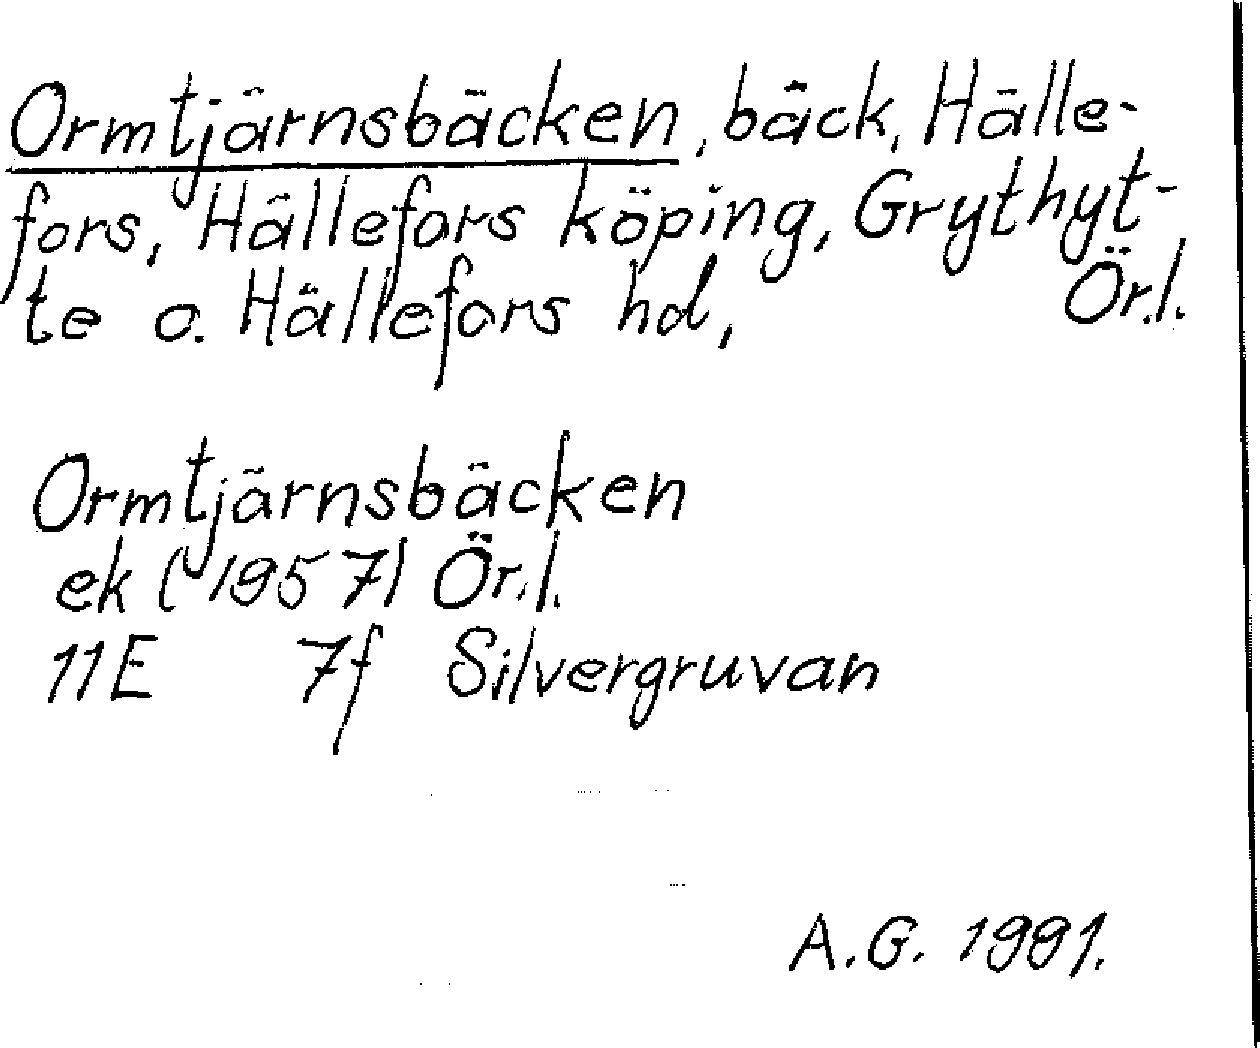 Ormtjärnsbäcken, bäck, Hälle-
fors, Hällefors köping, Grythyt-
te o. Hällefors hd, Ör.l.
Ormtjärnsbäcken
ek (1957) Ör.l.
11E 7f Silvergruvan
A.G. 1991.